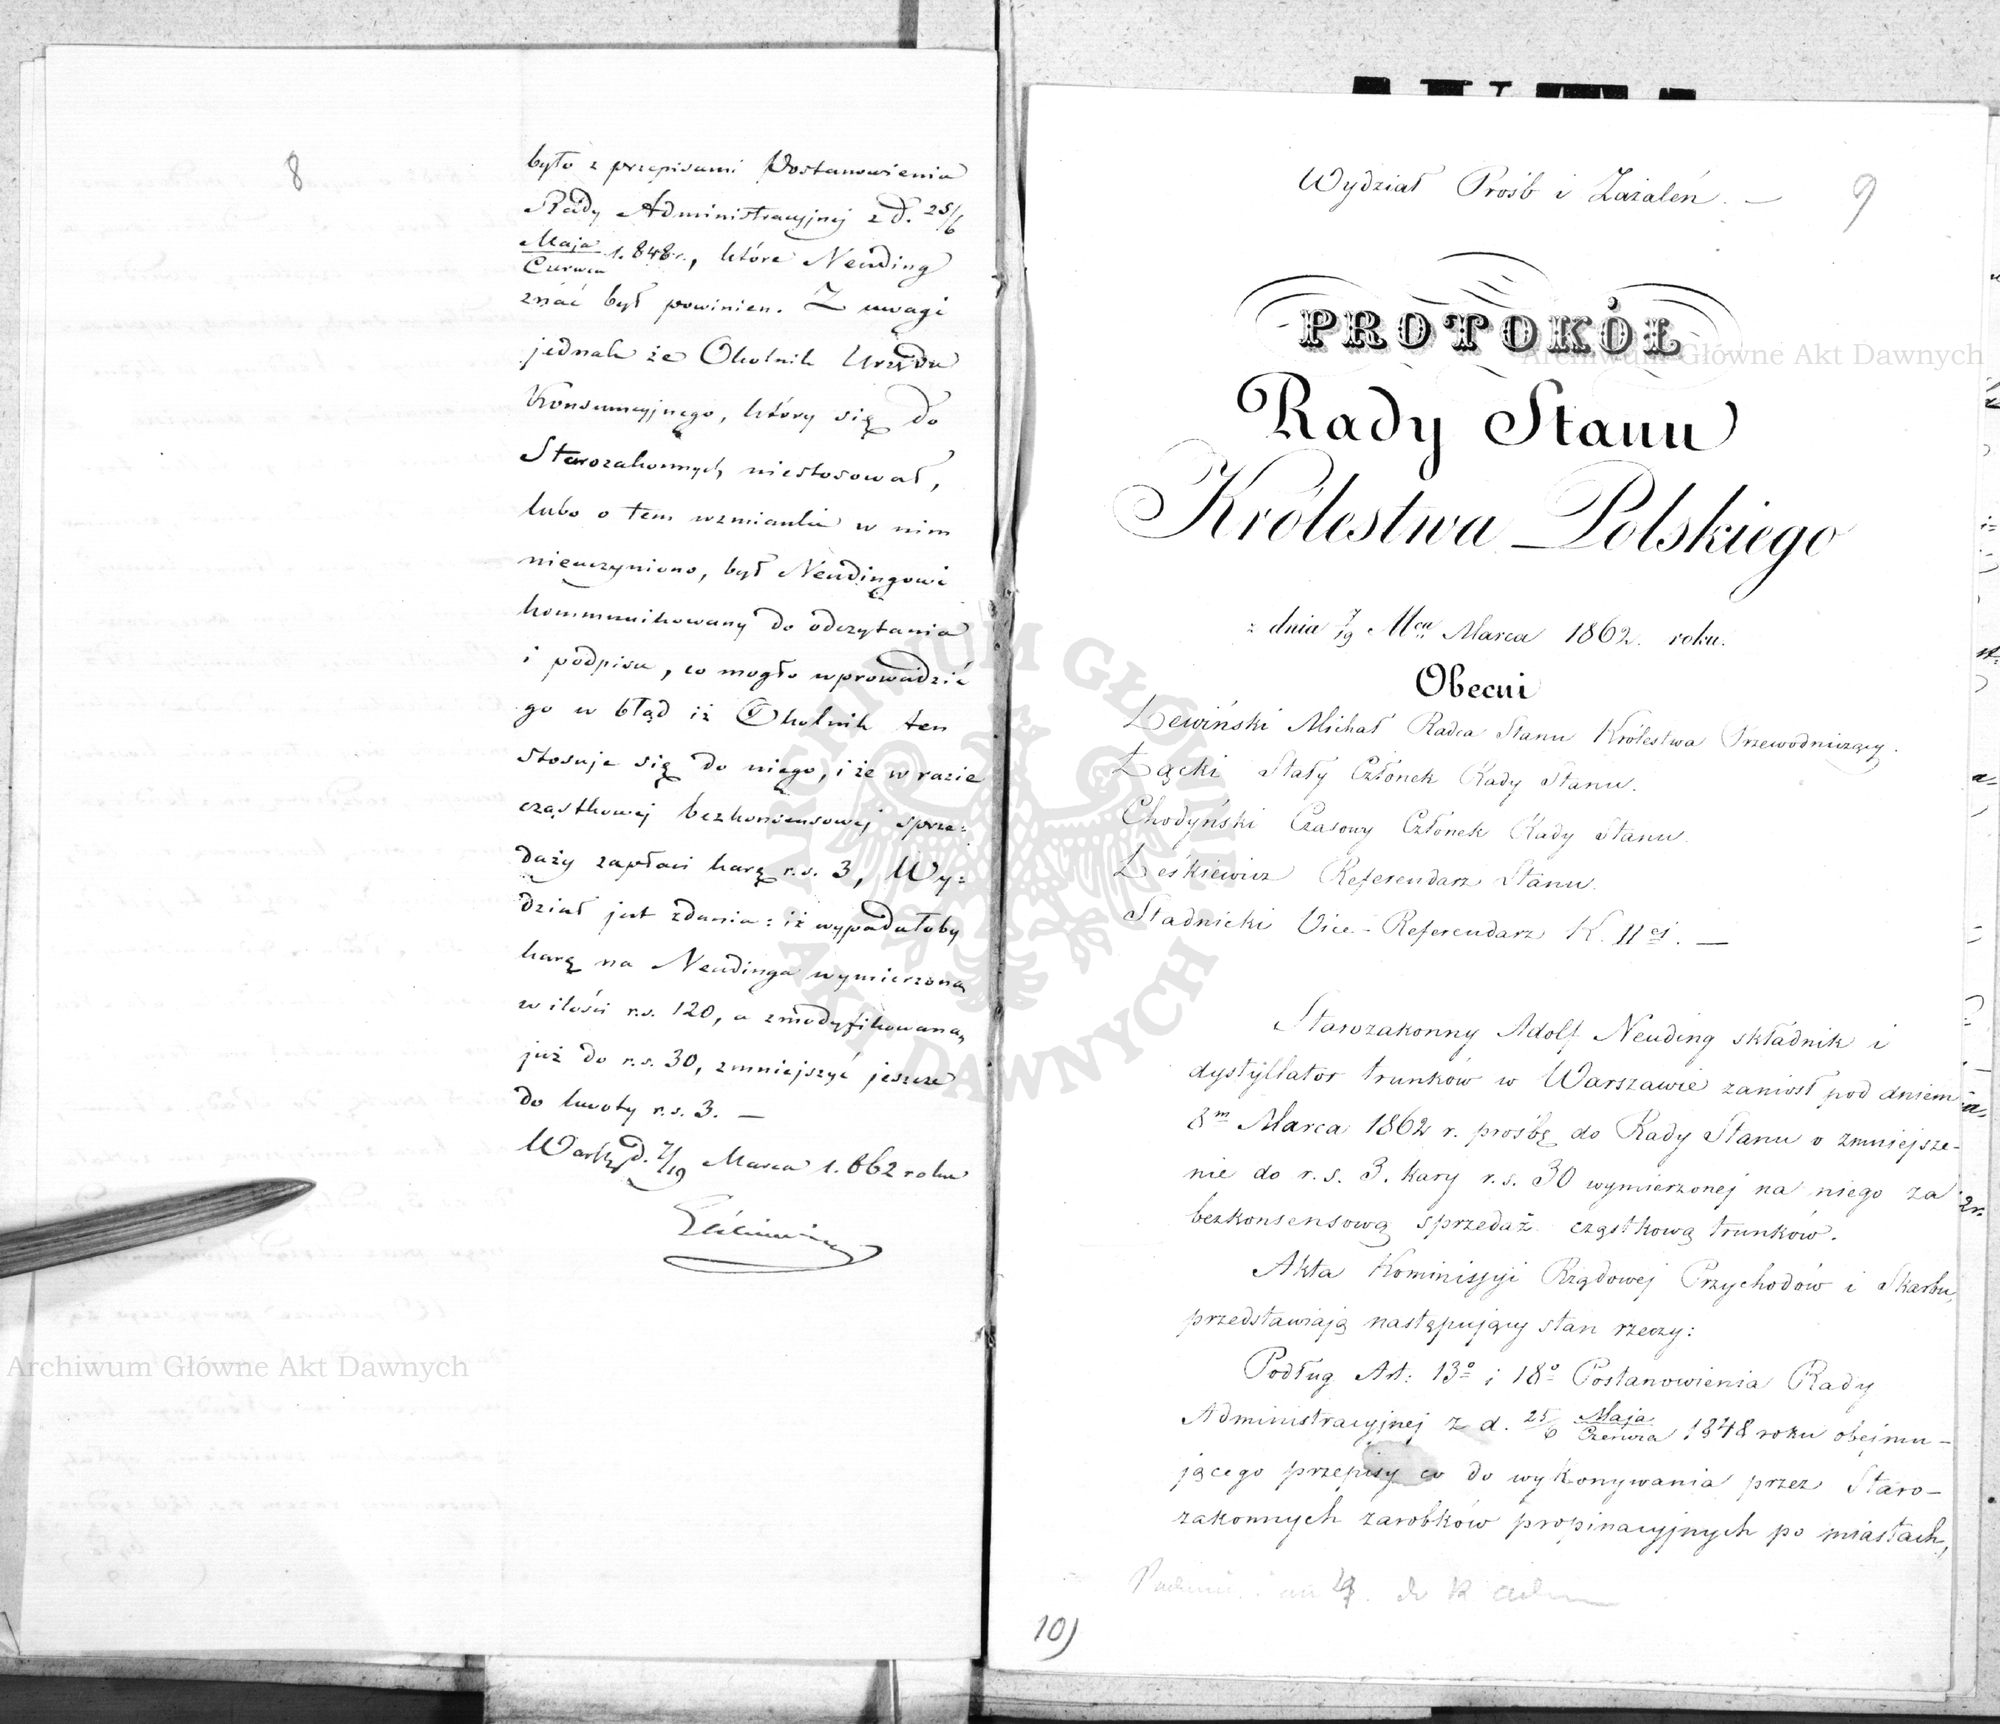 8
było z przepisami Postanowienia
Rady Administracyjnej z d. 25/6
Maja/Czerwca 1.848 r., które Neuding
znać był powinien. Z uwagi
jednak że Okolnik Urzędu
Konsumcyjnego, który się do
Starozakonnych niestosował,
lubo o tem wzmianki w nim
nieuczyniono, był Neudingowi
kommunikowany do odczytania
i podpisu, co mogło wprowadzić
go w błąd iż Okolnik ten
stosuje się do niego, i że w razie
cząstkowej bezkonsensowej sprze=
daży zapłaci karę r.s. 3, Wy=
dział jest zdania: iż wypadałoby
karę na Neudinga wymierzoną
w ilości r.s. 120, a zmodyfikowaną
już do r.s. 30, zmniejszyć jeszcze
do kwoty r.s. 3. —
d. 7/19 Marca 1.862 roku
Wydział Prośb i Zażaleń. —
9
PROTOKÓŁ
Rady Stanu
Królestwa Polskiego
z dnia 7/19 Mca Marca 1862. roku.
Obecni
Lewiński Michał Radca Stanu Królestwa Przewodniczący.
Łącki Stały Członek Rady Stanu.
Chodyński Czasowy Członek Rady Stanu.
Leśkiewicz Referendarz Stanu.
Stadnicki Vice-Referendarz K. IIej. —
Starozakonny Adolf Neuding składnik i
dystyllator trunków w Warszawie zaniósł pod dniem
8m Marca 1862 r. prośbę do Rady Stanu o zmniejsze-
nie do r.s. 3. kary r.s. 30 wymierzonej na niego za
bezkonsensową sprzedaż cząstkową trunków.
Akta Kommissyi Rządowej Przychodów i Skarbu,
przedstawiają następujący stan rzeczy:
Podług Art: 13o i 18o Postanowienia Rady
Administracyjnej z d. 25/6 Maja/Czerwca 1848 roku obejmu-
jącego przepisy co do wykonywania przez Staro-
zakonnych zarobków propinacyjnych po miastach,
10)
Archiwum Główne Akt Dawnych
Archiwum Główne Akt Dawnych
ARCHIWUM GŁÓWNE AKT DAWNYCH